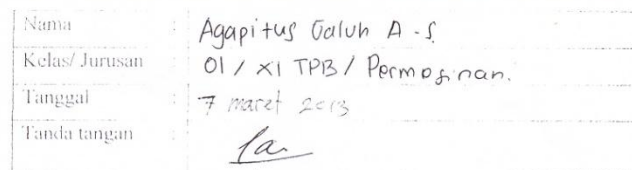 Nama : Agapitus Galuh A.S.
Kelas/ Jurusan : 01 / XI TPB / Permesinan.
Tanggal : 7 maret 2013
Tanda tangan :